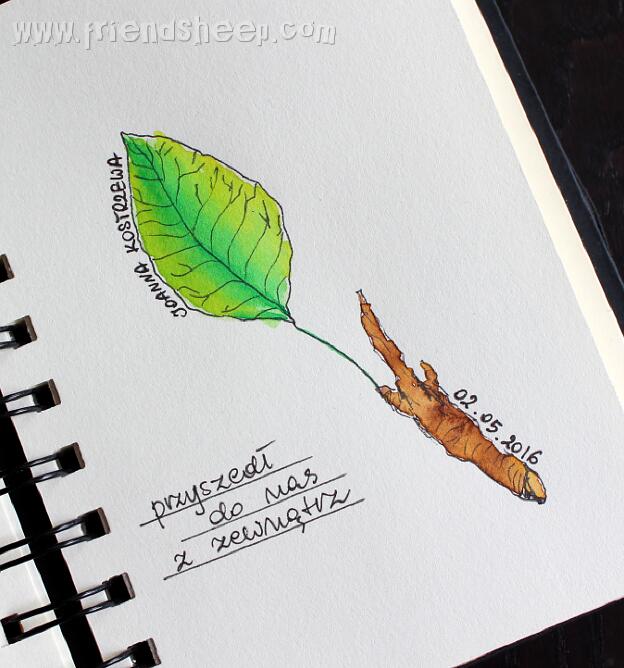 www.friendsheep.com
JOANNA KOSTRZEWA
02.05.2016
przyszedł
do nas
z zewnątrz